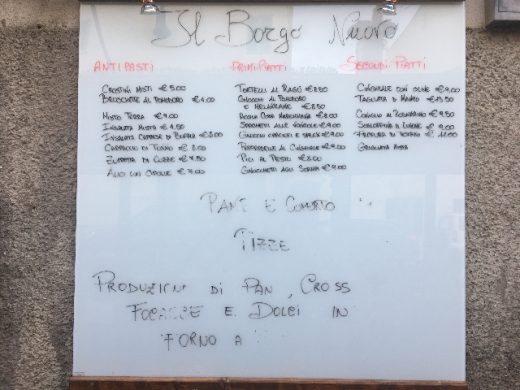 Il Borgo Nuovo
ANTIPASTI
CROSTINI MISTI €5.00
BRUSCHETTE AL POMODORO €4.00
MISTO TERRA €9.00
INSALATA MISTA €4.50
INSALATA CAPRESE DI BUFALA
CARPACCIO DI TONNO
ZUPPETTA DI COZZE €7.50
PRIMI PIATTI
TORTELLI AL RAGÙ €8.50
GNOCCHI AL POMODORO
E MELANZANE €8.50
ACQUA COTTA MAREMMANA €8.00
SPAGHETTI ALLE VONGOLE €9.00
GNOCCHI SPECK €9.00
PAPPARDELLE AL CINGHIALE €9.00
PICI AL PESTO €8.00
€9.00
SECONDI PIATTI
CINGHIALE CON OLIVE €9.00
TAGLIATA DI MANZO
CONIGLIO AL €9.50
SCALOPPINA AL LIMONE €9.00
FRITTURA DI
GRIGLIATA MISTA
PANI E
PIZZE
PRODUZIONI DI PAN , CROSS
FOCACCE E DOLCI IN
FORNO A